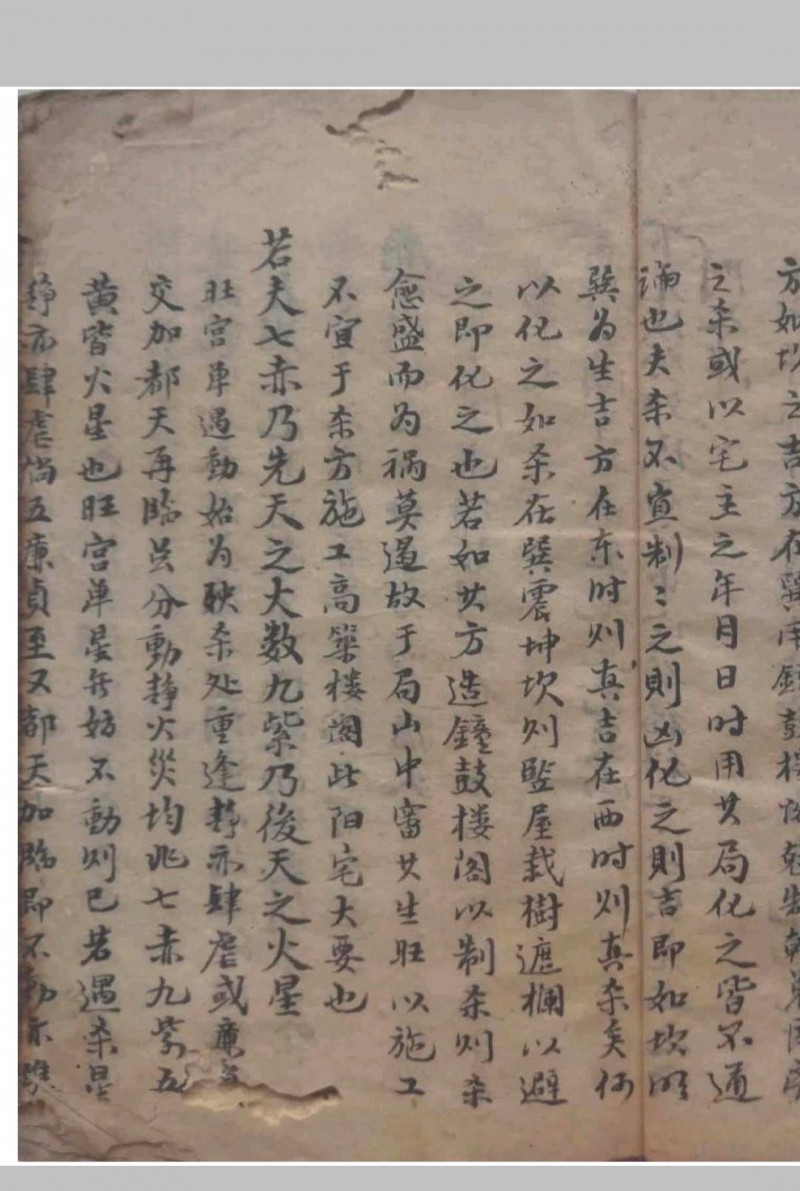 方如坎之吉方在巽
之杀或以宅主之年月日时用其局化之皆不通
论也夫杀不宜制〻之則凶化之則吉即如坎以
巽为生吉方在东时则真吉在西时则真杀矣何
以化之如杀在巽震坤坎则监屋栽樹遮欄以避
之即化之也若如其方造鐘鼓楼阁以制杀则杀
愈盛而为祸莫遏故于局山中審其生旺以施工
不宜于杀方施工高築楼阁此阳宅大要也
若夫七赤乃先天之大数九紫乃後天之火星
旺宫单遇動始为殃杀处重逢静亦肆虐或廉
交加都天再临莫分動静火災均兆七赤九紫五
黄皆火星也旺宫单星無妨不動则已若遇杀星
静亦肆虐倘五廉貞至又都天加臨即不動亦